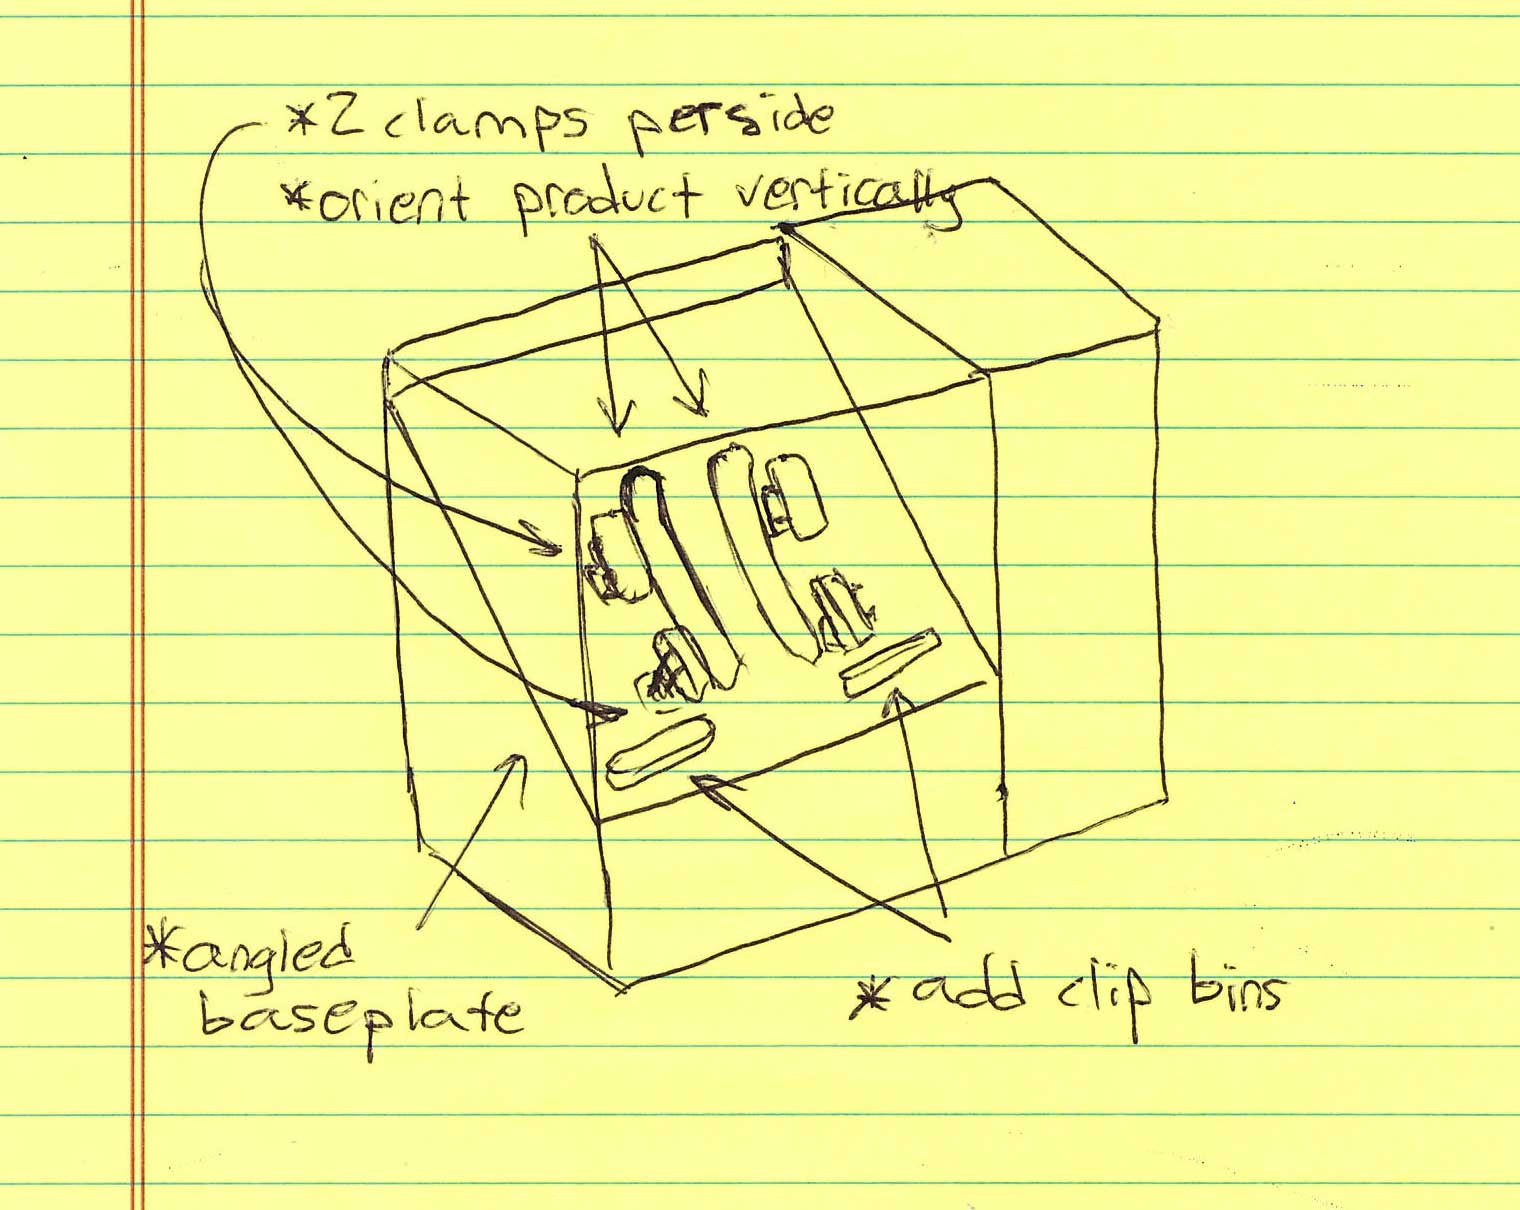 *2 clamps per side
*orient product vertically
*angled
baseplate
*add clip bins